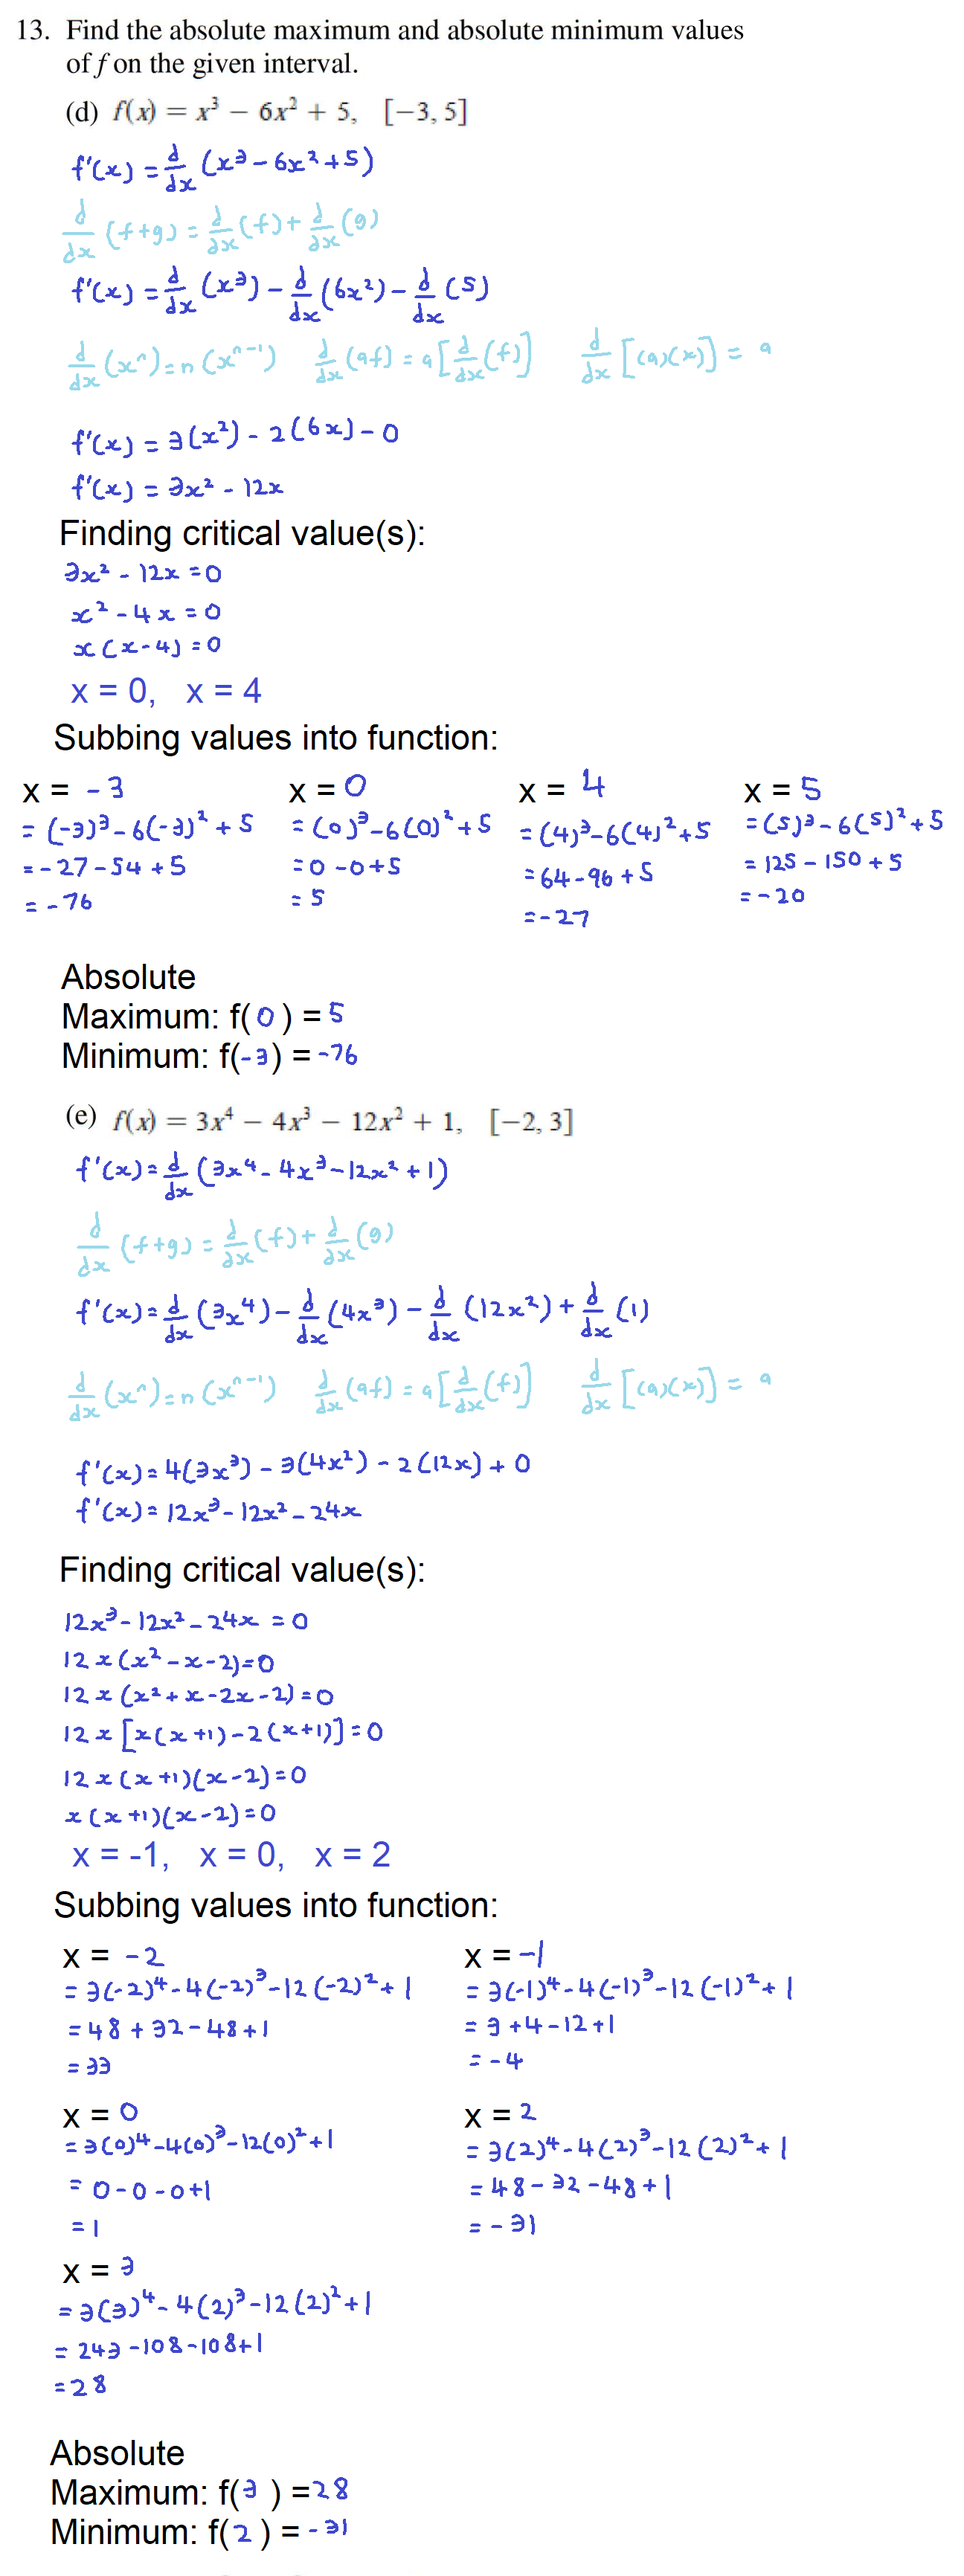 13. Find the absolute maximum and absolute minimum values
of f on the given interval.
(d) f(x) = x³ − 6x² + 5, [−3, 5]
f'(x) = d/dx (x³ - 6x² + 5)
d/dx (f+g) = d/dx (f) + d/dx (g)
f'(x) = d/dx (x³) - d/dx (6x²) - d/dx (5)
d/dx (xⁿ) = n(xⁿ⁻¹) d/dx (af) = a[d/dx (f)] d/dx [(a)(x)] = a
f'(x) = 3(x²) - 2(6x) - 0
f'(x) = 3x² - 12x
Finding critical value(s):
3x² - 12x = 0
x² - 4x = 0
x(x-4) = 0
x = 0, x = 4
Subbing values into function:
x = -3 x = 0 x = 4 x = 5
= (-3)³ - 6(-3)² + 5 = (0)³ - 6(0)² + 5 = (4)³ - 6(4)² + 5 = (5)³ - 6(5)² + 5
= -27 - 54 + 5 = 0 - 0 + 5 = 64 - 96 + 5 = 125 - 150 + 5
= -76 = 5 = -27 = -20
Absolute
Maximum: f(0) = 5
Minimum: f(-3) = -76
(e) f(x) = 3x⁴ − 4x³ − 12x² + 1, [−2, 3]
f'(x) = d/dx (3x⁴ - 4x³ - 12x² + 1)
d/dx (f+g) = d/dx (f) + d/dx (g)
f'(x) = d/dx (3x⁴) - d/dx (4x³) - d/dx (12x²) + d/dx (1)
d/dx (xⁿ) = n(xⁿ⁻¹) d/dx (af) = a[d/dx (f)] d/dx [(a)(x)] = a
f'(x) = 4(3x³) - 3(4x²) - 2(12x) + 0
f'(x) = 12x³ - 12x² - 24x
Finding critical value(s):
12x³ - 12x² - 24x = 0
12x(x² - x - 2) = 0
12x(x² + x - 2x - 2) = 0
12x[x(x+1) - 2(x+1)] = 0
12x(x+1)(x-2) = 0
x(x+1)(x-2) = 0
x = -1, x = 0, x = 2
Subbing values into function:
x = -2 x = -1
= 3(-2)⁴ - 4(-2)³ - 12(-2)² + 1 = 3(-1)⁴ - 4(-1)³ - 12(-1)² + 1
= 48 + 32 - 48 + 1 = 3 + 4 - 12 + 1
= 33 = -4
x = 0 x = 2
= 3(0)⁴ - 4(0)³ - 12(0)² + 1 = 3(2)⁴ - 4(2)³ - 12(2)² + 1
= 0 - 0 - 0 + 1 = 48 - 32 - 48 + 1
= 1 = -31
x = 3
= 3(3)⁴ - 4(2)³ - 12(2)² + 1
= 243 - 108 - 108 + 1
= 28
Absolute
Maximum: f(3) = 28
Minimum: f(2) = -31